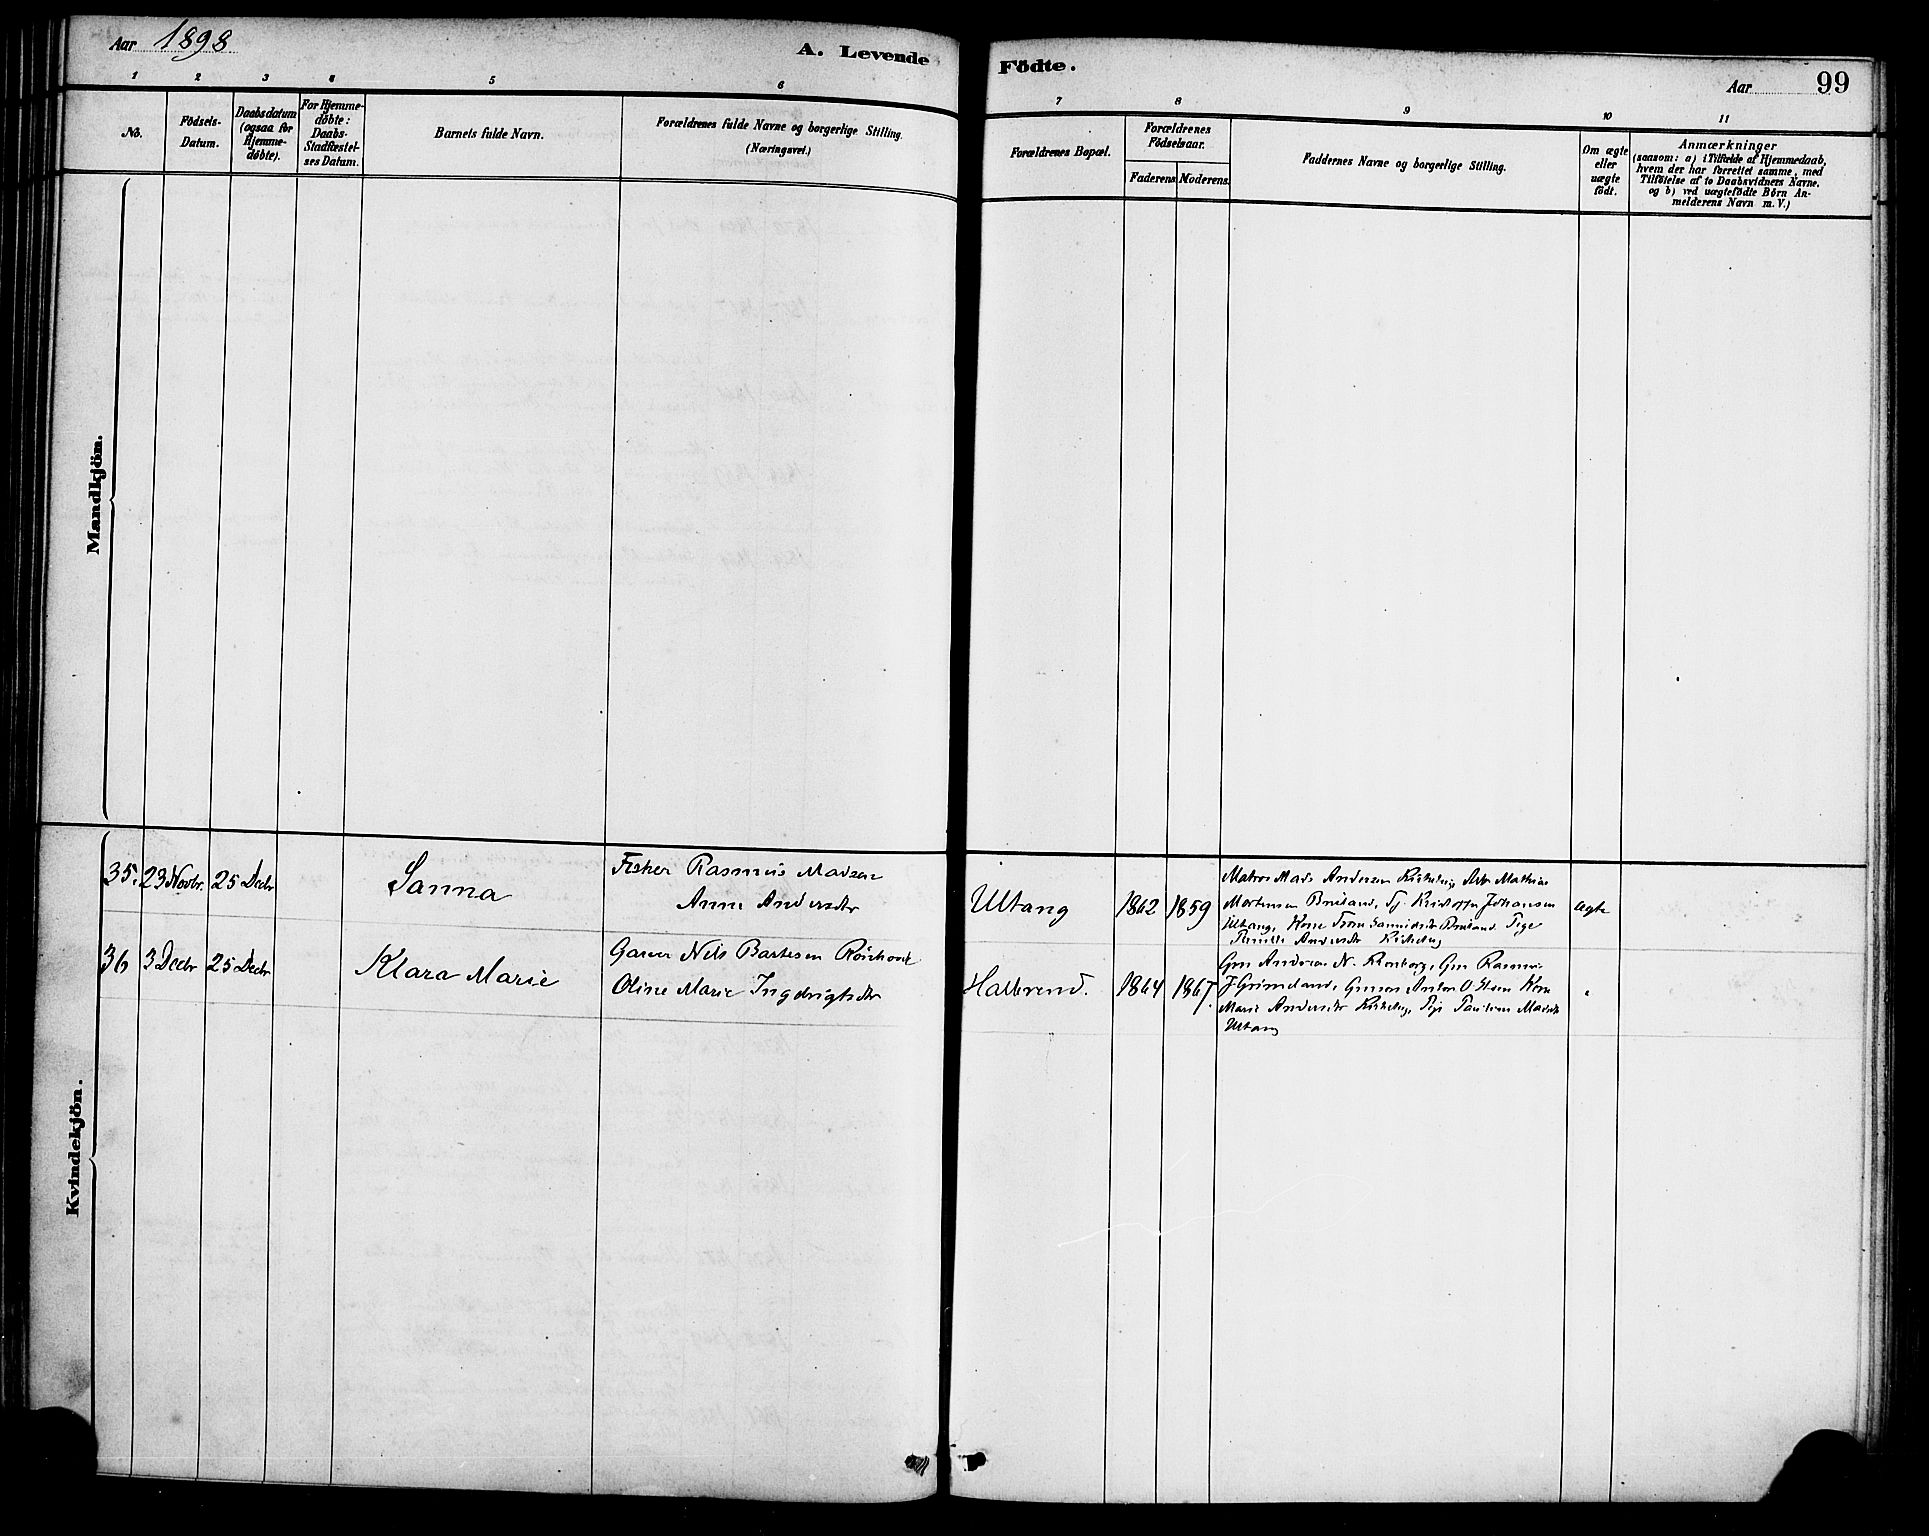 Aar 1898
A. Levende
Födte.
Aar 99
1 2 3 4 5 6
7 8 9 10 11
No.
Födsels-
Datum.
Daabsdatum
(ogsaa for
Hjemme-
döbte).
For Hjemme-
döbte:
Daabs-
Stadfæstel-
ses Datum.
Barnets fulde Navn.
Forældrenes fulde Navne og borgerlige Stilling.
(Næringsvei.)
Forældrenes Bopæl.
Forældrenes
Födselsaar.
Faderens. Moderens.
Faddernes Navne og borgerlige Stilling.
Om ægte
eller
uægte
födt.
Anmærkninger
(saasom: a) i Tilfælde af Hjemmedaab,
hvem der har forrettet samme, med
Tilföielse af to Daabsvidners Navne.
og b) ved uægtefödte Börn An-
melderens Navn m. V.)
Mandkjön.
Kvindekjön.
35. 23 Novbr. 25 Decbr
Sanna
Fisker Rasmus Madsen
Anne Andersdtr
Ultang 1862 1859
Matros Mads Andersen Arb. Mathias
Mortensen Kristoffer Johansen
Ultang, Kone Pige
Andersdtr
ægte
36 3 Decbr 25 Decbr
Klara Marie
Garver Nils Bartesen
Oline Marie Ingebrigtsdtr
Halbrend. 1864 1867.
Gm Andreas N. Gm Rasmus
J Grimeland, Anton O Kone
Marie Andersdtr Pige
Ultang